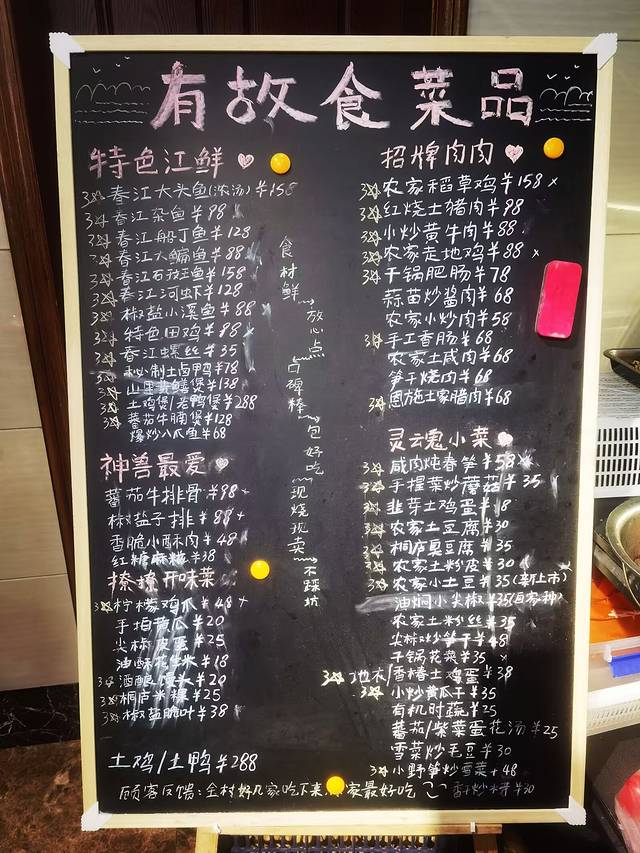 有故食菜品
特色江鲜
3☆春江大头鱼(浓汤)¥158
3☆春江杂鱼¥98
3☆春江船丁鱼¥128
3☆春江大鳊鱼¥88
3☆春江石斑鱼¥158
3☆春江河虾¥128
3☆椒盐小溪鱼¥88
特色田鸡¥88×
3☆春江螺丝¥35
秘制土卤鸭¥78
3☆山里黄鳝煲¥138
3☆土鸡煲/老鸭煲¥288
3☆蕃茄牛腩煲¥128
爆炒八爪鱼¥68
神兽最爱
蕃茄牛排骨¥98×
椒盐子排¥88×
香脆小酥肉¥48
红糖麻糍¥38
捺捺开味菜
3☆柠檬鸡爪¥48×
手拍黄瓜¥20
尖椒皮蛋¥25
油酥花生米¥18
3☆酒酿馒头¥20
3☆桐庐米粿¥25
3☆椒盐脆叶¥38
土鸡/土鸭¥288
食材鲜~放心点
口碑棒~包好吃
现烧现卖~不踩坑
招牌肉肉
3☆农家稻草鸡¥158×
3☆红烧土猪肉¥98
3☆小炒黄牛肉¥88
3☆农家走地鸡¥88×
3☆干锅肥肠¥78
蒜苗炒酱肉¥68
农家小炒肉¥58
3☆手工香肠¥68
农家土咸肉¥68
笋干烧肉¥68
3☆恩施土家腊肉¥68
灵魂小菜
3☆咸肉炖春笋¥58×
3☆手握菜炒蘑菇¥35
3☆韭芽土鸡蛋¥18
3☆农家土豆腐¥30
3☆桐庐臭豆腐¥35
3☆农家土粉皮¥30
3☆农家小土豆¥35(新上市)
油焖小尖椒¥35(自家种)
农家土米粉丝¥35
尖椒炒笋干¥48
干锅花菜¥35
3☆地衣/香椿土鸡蛋¥38
3☆小炒黄瓜干¥35
有机时蔬¥25
蕃茄/紫菜蛋花汤¥25
雪菜炒毛豆¥30
3☆小野笋炒雪菜¥48
顾客反馈:全村好几家吃下来 家最好吃~